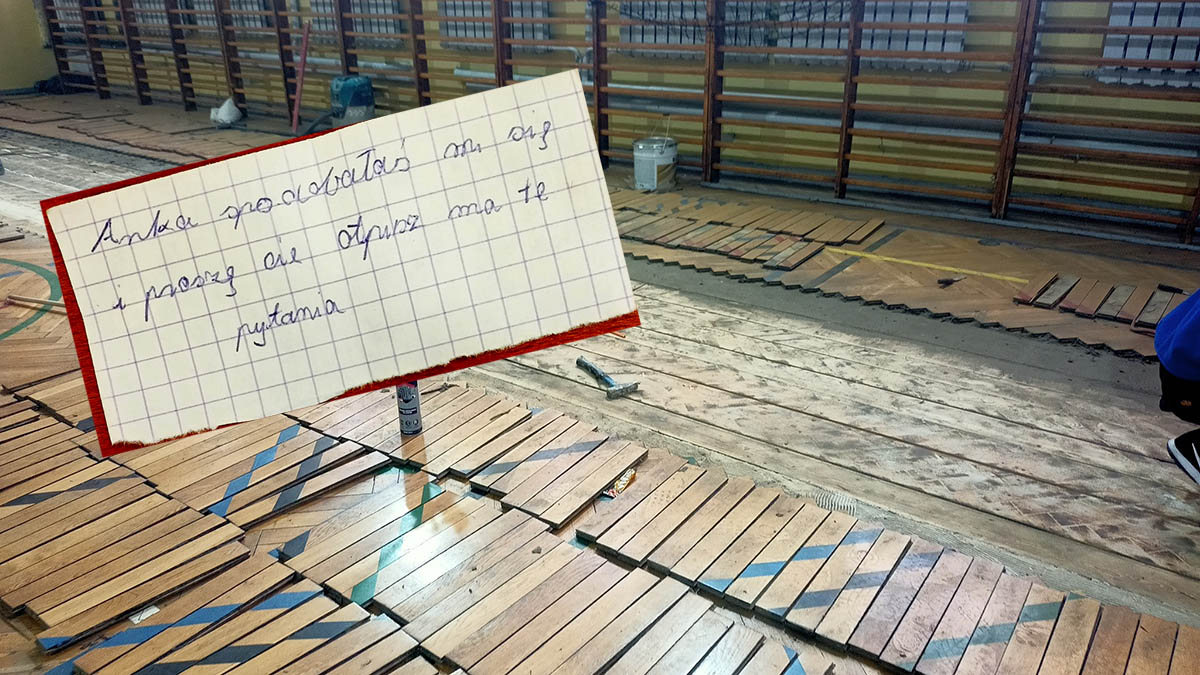 Anka spodobałaś mi się
i proszę cie otpisz na te
pytania